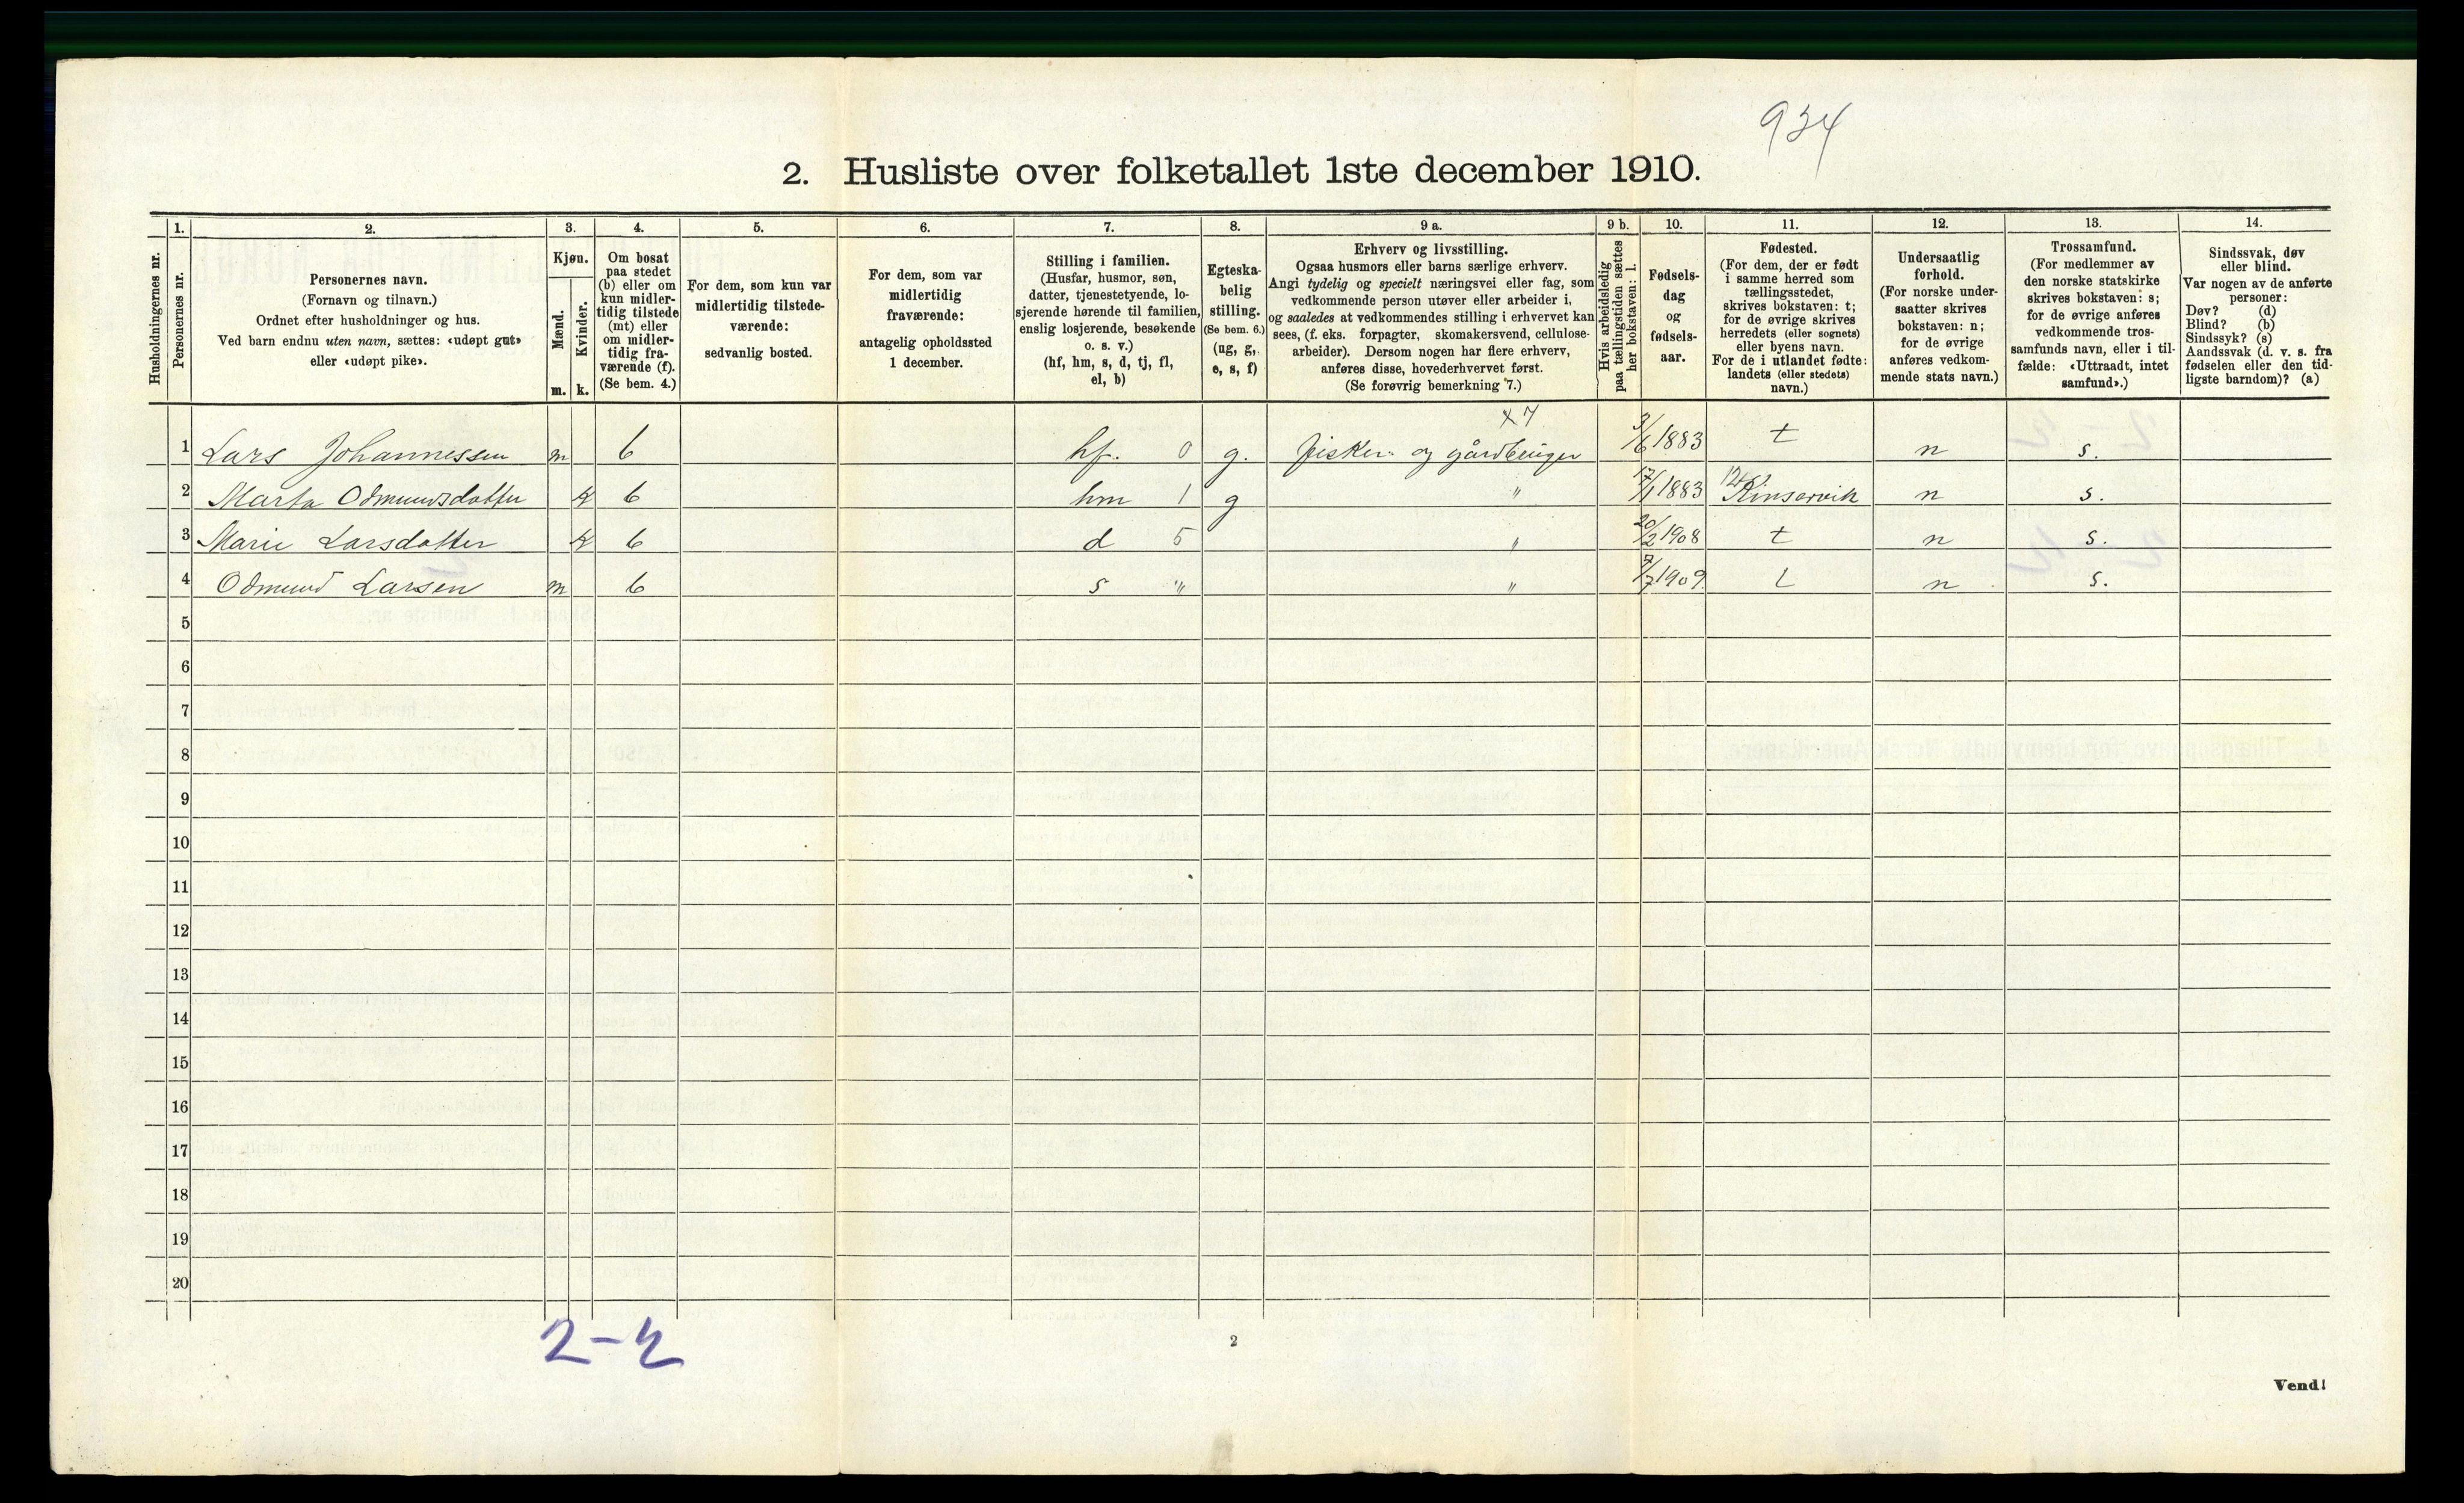 934
2. Husliste over folketallet 1ste december 1910.
Husholdningernes nr.
1.
Personernes nr.
2.
Personernes navn.
(Fornavn og tilnavn.)
Ordnet efter husholdninger og hus.
Ved barn endnu uten navn, sættes: «udøpt gut»
eller «udøpt pike».
3.
Kjøn.
Mænd.
Kvinder.
m. k.
4.
Om bosat
paa stedet
(b) eller om
kun midler-
tidig tilstede
(mt) eller
om midler-
tidig fra-
værende (f).
(Se bem. 4.)
5.
For dem, som kun var
midlertidig tilstede-
værende:
sedvanlig bosted.
6.
For dem, som var
midlertidig
fraværende:
antagelig opholdssted
1 december.
7.
Stilling i familien.
(Husfar, husmor, søn,
datter, tjenestetyende, lo-
sjerende hørende til familien,
enslig losjerende, besøkende
o. s. v.)
(hf, hm, s, d, tj, fl,
el, b)
8.
Egteska-
belig
stilling.
(Se bem. 6.)
(ug, g,
e, s, f)
9 a.
Erhverv og livsstilling.
Ogsaa husmors eller barns særlige erhverv.
Angi tydelig og specielt næringsvei eller fag, som
vedkommende person utøver eller arbeider i,
og saaledes at vedkommendes stilling i erhvervet kan
sees, (f. eks. forpagter, skomakersvend, cellulose-
arbeider). Dersom nogen har flere erhverv,
anføres disse, hovederhvervet først.
(Se forøvrig bemerkning 7.)
9 b.
Hvis arbeidsledig
paa tællingstiden sættes
her bokstaven: l.
10.
Fødsels-
dag
og
fødsels-
aar.
11.
Fødested.
(For dem, der er født
i samme herred som
tællingsstedet,
skrives bokstaven: t;
for de øvrige skrives
herredets (eller sognets)
eller byens navn.
For de i utlandet fødte:
landets (eller stedets)
navn.)
12.
Undersaatlig
forhold.
(For norske under-
saatter skrives
bokstaven: n;
for de øvrige
anføres vedkom-
mende stats navn.)
13.
Trossamfund.
(For medlemmer av
den norske statskirke
skrives bokstaven: s;
for de øvrige anføres
vedkommende tros-
samfunds navn, eller i til-
fælde: «Uttraadt, intet
samfund».)
14.
Sindssvak, døv
eller blind.
Var nogen av de anførte
personer:
Døv? (d)
Blind? (b)
Sindssyk? (s)
Aandssvak (d. v. s. fra
fødselen eller den tid-
ligste barndom)? (a)
x 7
1 Lars Johannessen m b hf. 0 g. fisker og gårdbruger 3/6 1883 t n s.
2 Marta Odmundsdotter k b hm 1 g " 17/1 1883 Kinservik n s.
3 Marie Larsdotter k b d 5 " 20/2 1908 t n s.
4 Odmund Larsen m b s " " 7/7 1909 t n s.
5
6
7
8
9
10
11
12
13
14
15
16
17
18
19
20
2-2
2
Vend!